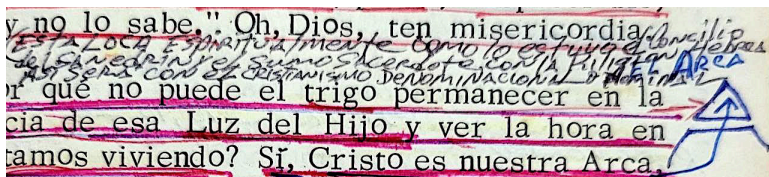 y no lo sabe." Oh, Dios, ten misericordia,
ESTA LOCA ESPIRITUALmente Como lo estuvo el Concilio
del SANEdRIN y el SUMO SAcerdote con la Religion Hebrea
ASI SERA CON EL CRISTIANISMO DENOMINACIONAL
EL ARCA
or qué no puede el trigo permanecer en la
cia de esa Luz del Hijo y ver la hora en
tamos viviendo? Sí, Cristo es nuestra Arca,